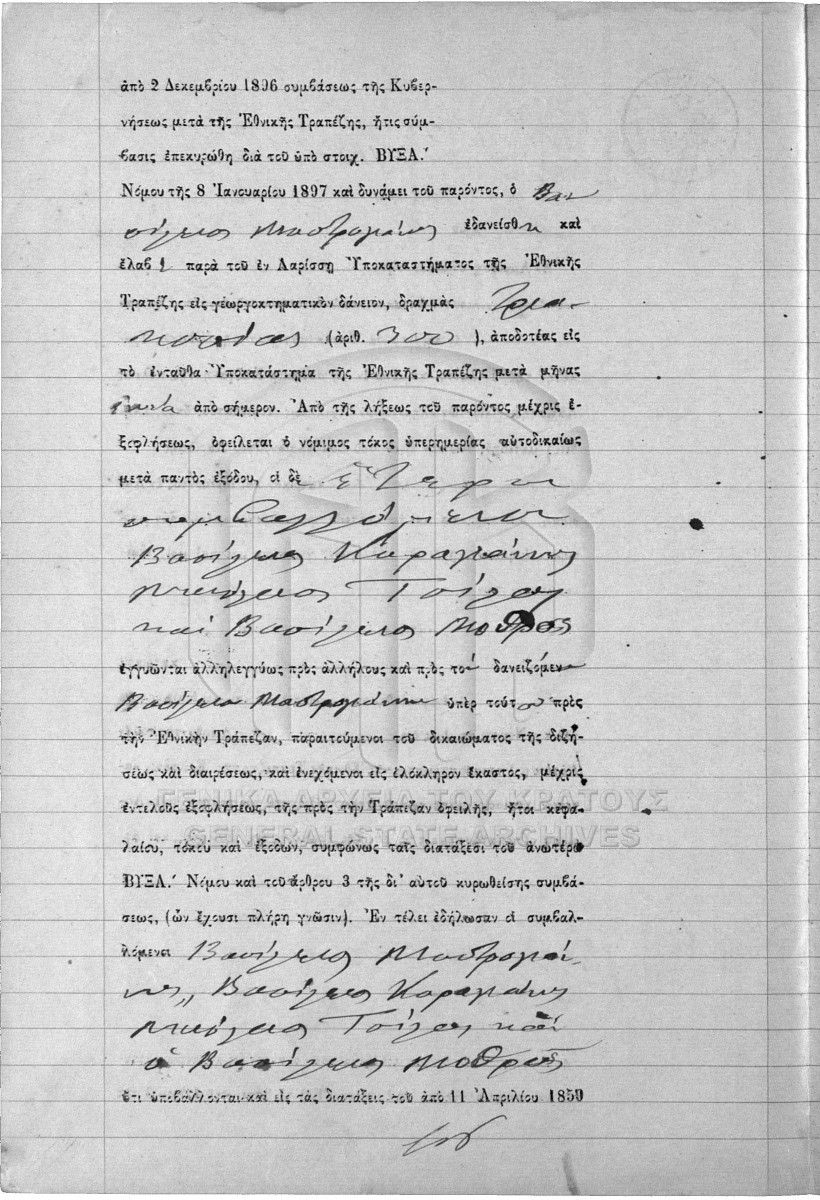 ἀπὸ 2 Δεκεμβρίου 1896 συμβάσεως τῆς Κυβερ-
νήσεως μετὰ τῆς Ἐθνικῆς Τραπέζης, ἥτις σύμ-
βασις ἐπεκυρώθη διὰ τοῦ ὑπὸ στοιχ. ΒΥΞΑ.΄
Νόμου τῆς 8 Ἰανουαρίου 1897 καὶ δυνάμει τοῦ παρόντος, ὁ Βα
σίλειος Μαστρογιάννης ἐδανείσθη καὶ
ἔλαβε παρὰ τοῦ ἐν Λαρίσσῃ Ὑποκαταστήματος τῆς Ἐθνικῆς
Τραπέζης εἰς γεωργοκτηματικὸν δάνειον, δραχμὰς Τρια-
κοσίας (ἀριθ. 300), ἀποδοτέας εἰς
τὸ ἐνταῦθα Ὑποκατάστημα τῆς Ἐθνικῆς Τραπέζης μετὰ μῆνας
ἀπὸ σήμερον. Ἀπὸ τῆς λήξεως τοῦ παρόντος μέχρις ἐ-
ξοφλήσεως, ὀφείλεται ὁ νόμιμος τόκος ὑπερημερίας αὐτοδικαίως
μετὰ παντὸς ἐξόδου, οἱ δὲ ἕτεροι
συμβαλλόμενοι
Βασίλειος Καραγιάννης
Νικόλαος Τσίλας
καὶ Βασίλειος Μοθρος
ἐγγυῶνται ἀλληλεγγύως πρὸς ἀλλήλους καὶ πρὸς τὸν δανειζόμενον
Βασίλειον Μαστρογιάννην ὑπὲρ τούτου πρὸς
τὴν Ἐθνικὴν Τράπεζαν, παραιτούμενοι τοῦ δικαιώματος τῆς διζή-
σεως καὶ διαιρέσεως, καὶ ἐνεχόμενοι εἰς ὁλόκληρον ἕκαστος, μέχρις
ἐντελοῦς ἐξοφλήσεως, τῆς πρὸς τὴν Τράπεζαν ὀφειλῆς, ἤτοι κεφα-
λαίου, τόκου καὶ ἐξόδων, συμφώνως ταῖς διατάξεσι τοῦ ἀνωτέρω
ΒΥΞΑ.΄ Νόμου καὶ τοῦ ἄρθρου 3 τῆς δι' αὐτοῦ κυρωθείσης συμβά-
σεως, (ὧν ἔχουσι πλήρη γνῶσιν). Ἐν τέλει ἐδήλωσαν οἱ συμβαλ-
λόμενοι Βασίλειος Μαστρογιάν-
νης, Βασίλειος Καραγιάννης
Νικόλαος Τσίλας καὶ
ὁ Βασίλειος Μοθρος
ὅτι ὑποβάλλονται καὶ εἰς τὰς διατάξεις τοῦ ἀπὸ 11 Ἀπριλίου 1859
ΓΕΝΙΚΑ ΑΡΧΕΙΑ ΤΟΥ ΚΡΑΤΟΥΣ
GENERAL STATE ARCHIVES